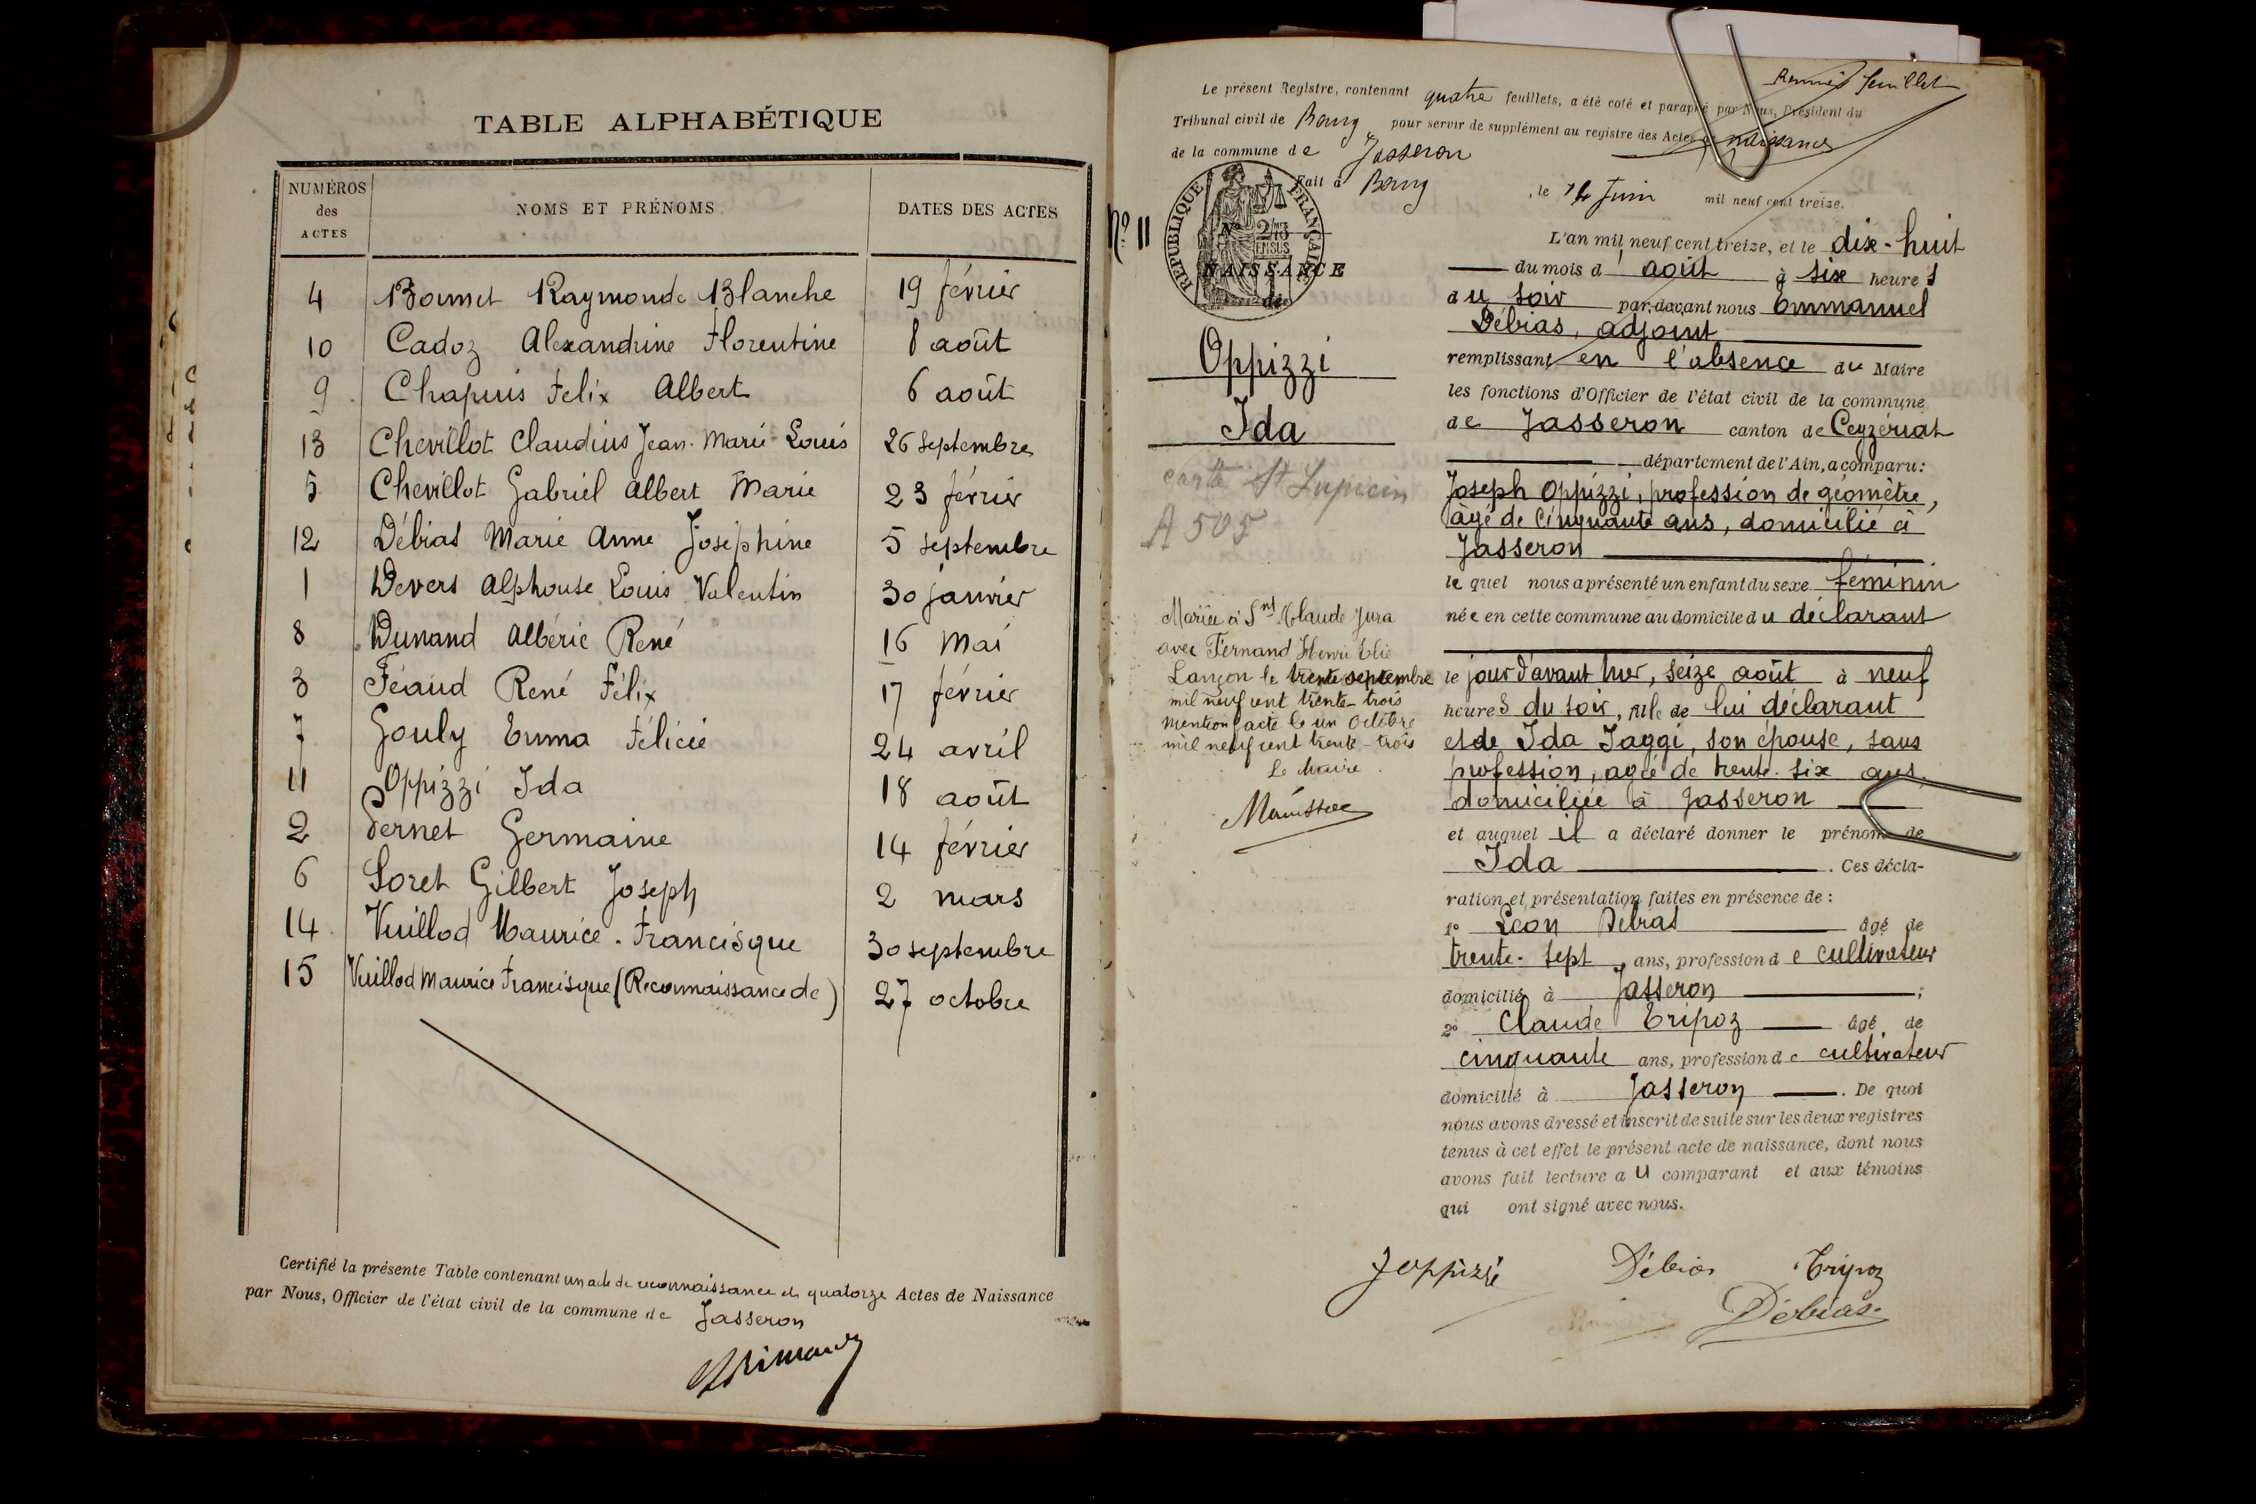 TABLE ALPHABÉTIQUE
NUMÉROS des ACTES NOMS ET PRÉNOMS DATES DES ACTES
4 Bonnet Raymonde Blanche 19 février
10 Cadoz Alexandrine Florentine 8 août
9 Chapuis Felix Albert 6 août
13 Chevillot Claudius Jean-Marie-Louis 26 septembre
5 Chevillot Gabriel Albert Marie 23 février
12 Débias Marie Anne Joséphine 5 septembre
1 Devers Alphonse Louis Valentin 30 janvier
8 Dunand Albéric René 16 Mai
3 Féaud René Félix 17 février
7 Gouly Emma Félicie 24 avril
11 Oppizzi Ida 18 août
2 Pernet Germaine 14 février
6 Soret Gilbert Joseph 2 mars
14 Vuillod Maurice. Francisque 30 septembre
15 Vuillod Maurice Francisque (Reconnaissance de) 27 octobre
Certifié la présente Table contenant un acte de reconnaissance et quatorze Actes de Naissance
par Nous, Officier de l'état civil de la commune de Jasseron
Premier feuillet
Le présent Registre, contenant quatre feuillets, a été coté et paraphé par Nous, Président du
Tribunal civil de Bourg pour servir de supplément au registre des Actes de naissances
de la commune de Jasseron
Fait à Bourg, le 14 Juin mil neuf cent treize.
RÉPUBLIQUE FRANÇAISE
No 11
NAISSANCE
de
Oppizzi
Ida
carte St Lupicin
A 505
Mariée à Snt Claude Jura
avec Fernand Henri Elie
Lançon le trente septembre
mil neuf cent trente-trois
Mention faite le un Octobre
mil neuf cent trente-trois
Le Maire.
L'an mil neuf cent treize, et le dix-huit
du mois d'août à six heures
du soir par-devant nous Emmanuel
Débias, adjoint
remplissant en l'absence du Maire
les fonctions d'Officier de l'état civil de la commune
de Jasseron canton de Ceyzériat
département de l'Ain, a comparu:
Joseph Oppizzi, profession de géomètre,
âgé de cinquante ans, domicilié à
Jasseron
lequel nous a présenté un enfant du sexe féminin
née en cette commune au domicile du déclarant
le jour d'avant hier, seize août à neuf
heures du soir, fille de lui déclarant
et de Ida Jaggi, son épouse, sans
profession, agée de trente-six ans,
domiciliée à Jasseron
et auquel il a déclaré donner le prénom de
Ida. Ces décla-
ration et présentation faites en présence de:
1o Léon Débias âgé de
trente-sept ans, profession de cultivateur
domicilié à Jasseron;
2o Claude Tripoz âgé de
cinquante ans, profession de cultivateur
domicilié à Jasseron. De quoi
nous avons dressé et inscrit de suite sur les deux registres
tenus à cet effet le présent acte de naissance, dont nous
avons fait lecture au comparant et aux témoins
qui ont signé avec nous.
J Oppizzi Débias Tripoz
Débias